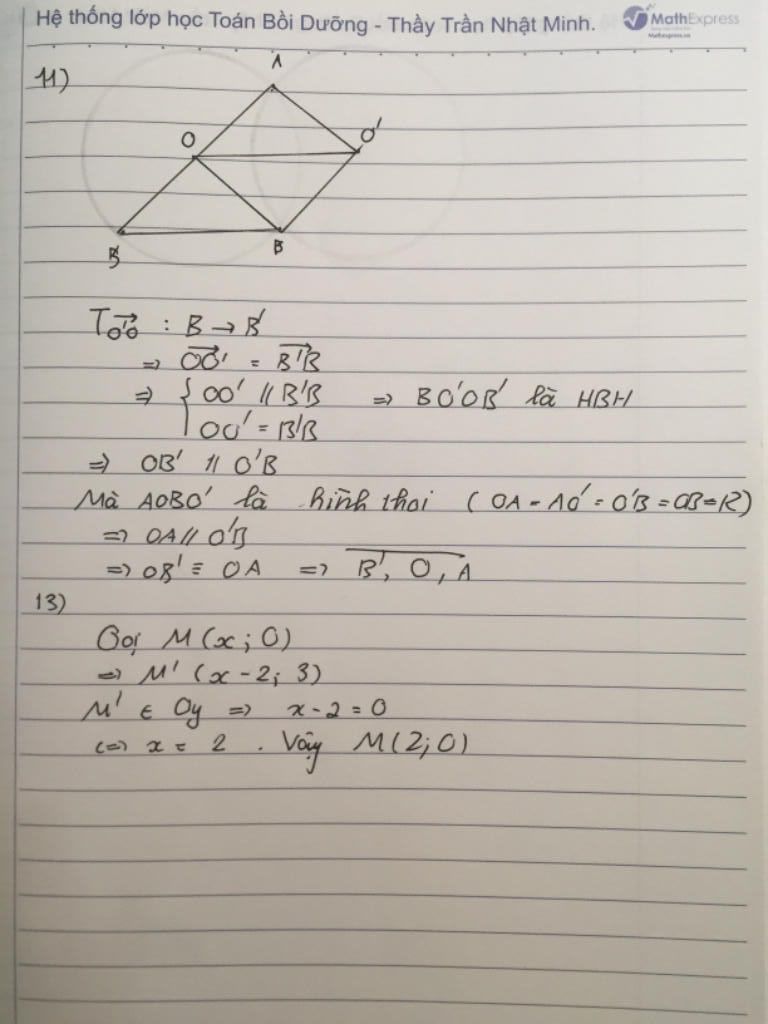 Hệ thống lớp học Toán Bồi Dưỡng - Thầy Trần Nhật Minh.
MathExpress
Mathexpress.vn
11)
A
O
O'
B'
B
T_{\overrightarrow{O'O}} : B → B'
=> \overrightarrow{OO'} = \overrightarrow{B'B}
=> { OO' // B'B => BO'OB' là HBH
OO' = B'B
=> OB' // O'B
Mà AOBO' là hình thoi ( OA = AO' = O'B = OB = R)
=> OA // O'B
=> OB' ≡ OA => \overline{B', O, A}
13)
Gọi M (x ; 0)
=> M' (x - 2; 3)
M' ∈ Oy => x - 2 = 0
<=> x = 2 . Vậy M(2;0)